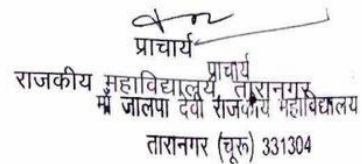 प्राचार्य
प्राचार्य
राजकीय महाविद्यालय, तारानगर
माँ जालपा देवी राजकीय महाविद्यालय
तारानगर (चूरू) 331304